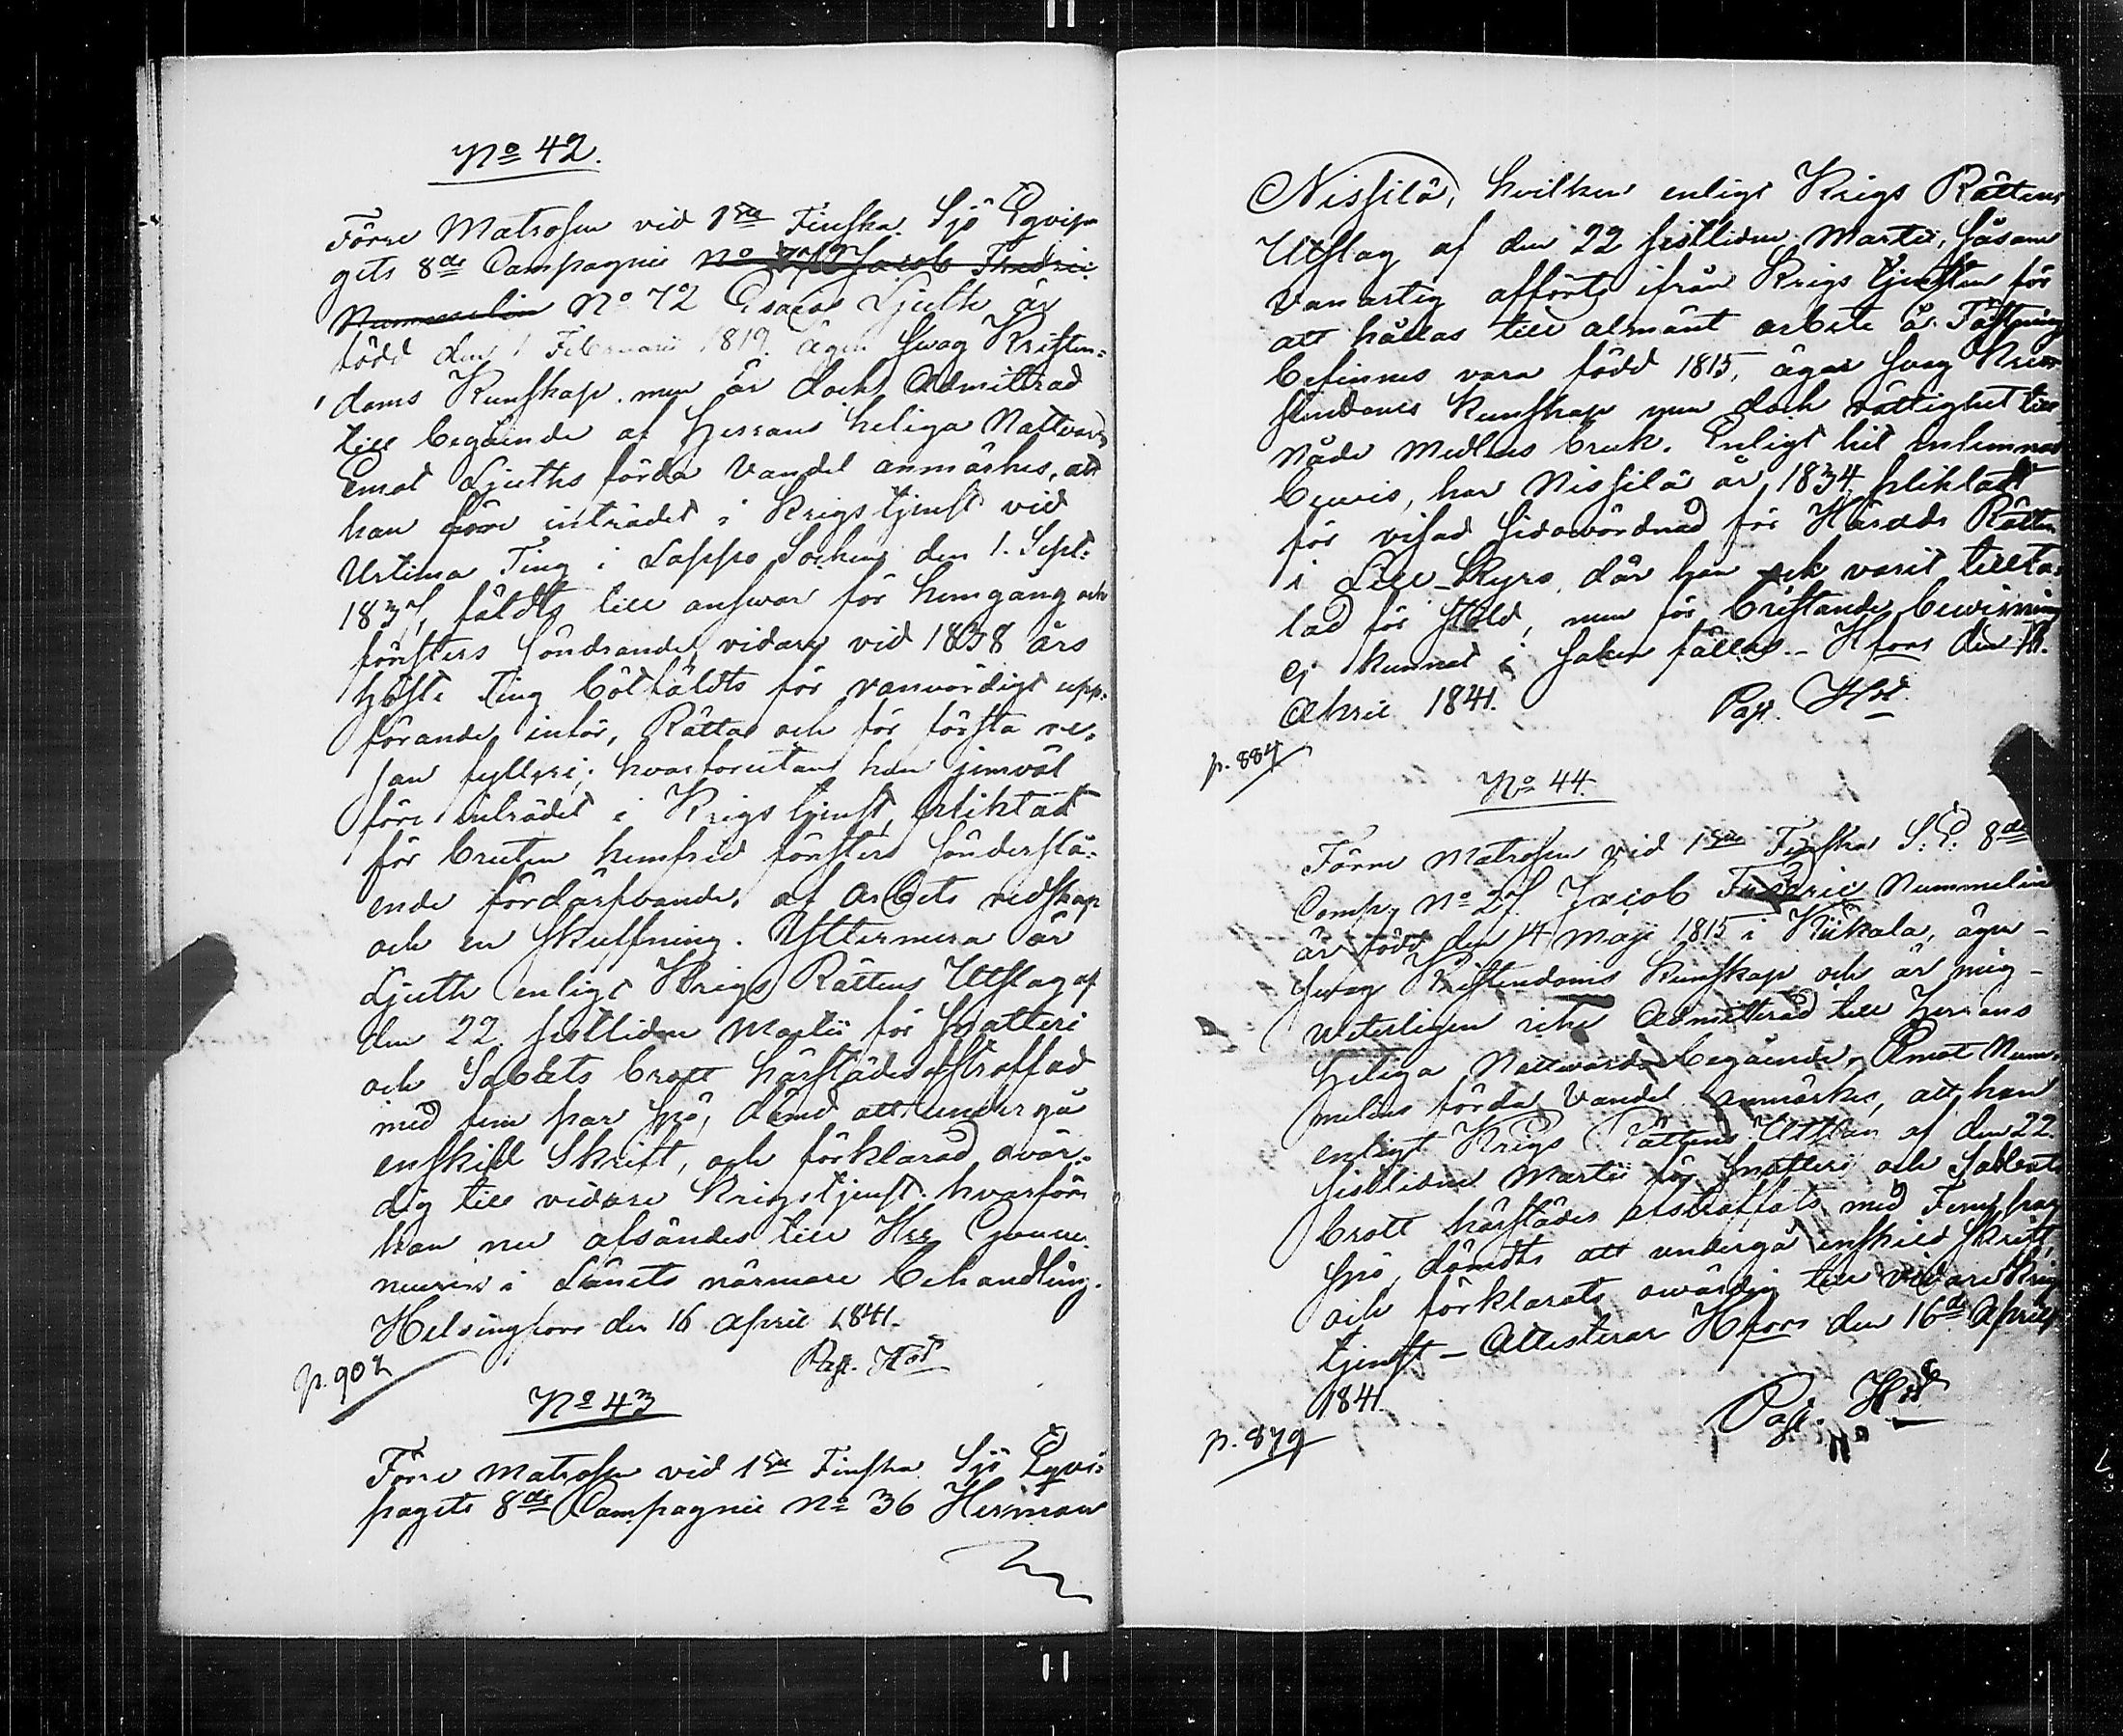 No 42.
Förre Matrosen vid 1sta Finska Sjö Eqvipa
gets 8de Compagnie No 27 Jacob Fredric
Nummelin No 72 Esaias Ljuth är
född den 1 Februarii 1819. äger svag Kristen=
doms Kunskap men är dock Admittrad
till begående af Herrans heliga Nattvard
Emot Ljuths förda Vandel anmärkes, att
han före inträdet i Krigstjenst vid
Urtima Ting i Lappo Socken den 1. Sept:
1837, fäldts till answar för hemgång och
fönsters söndrande, vidare vid 1838 års
Höste Ting bötfäldts för vanvördigt upp=
förande inför Rätta och för första re=
san fylleri; hvarförutan han jemväl
före inträdet i Krigstjenst, pliktat
för bruten hemfrid fönsters sönderslå=
ende fördärfvande af Arbets redskap
och en skuffning. Yttermera är
Ljuth enligt Krigs Rättens Utslag af
den 22. sistlidne Martii för snatteri
och Sabbats brott härstädes afstraffad
med fem par spö, dömd att undergå
enskild Skrift, och förklarad ovär=
dig till vidare Krigstjenst. hvarföre
han nu afsändes till Hrr Gouver
neuren i Länets närmare behandling.
Helsingfors den 16 April 1841.
Past. Hst
p. 902
No 43
Förre Matrosen vid 1sta Finska Sjö Eqvi=
pagets 8de Compagnie No 36 Herman
Nissilä, hvilken enligt Krigs Rättens
Utslag af den 22 sistlidne Martii, såsom
vanartig afförts ifrån Krigstjensten för
att hållas till almänt arbete å Fästning
befinnes vara född 1815, äger svag Kri
stendoms Kunskap men dock rättighet till
Nåde Medlens bruk. Enligt hit inlemnat
bewis, har Nissilä år 1834 pliktadt
för visad sidowördnad för Härads Rätten
i Lill-Kyro, där han ock varit tillta=
lad för stöld, men för bristande bewisning
ej kunnat i saken fällas. Hfors den 16.
April 1841.
Past. Hst
p. 884
No 44.
Förre Matrosen vid 1sta Finska S. E. 8de
Comp. No 27. Jacob Fredric Nummelin
är född den 4 Maji 1815 i Kiikala, äger
svag Kristendoms Kunskap och är mig
veterligen icke Admittrad till Herrans
Heliga Nattvards begående. Emot Num=
melins förda Vandel anmärkes, att han
enligt Krigs Rättens Utslag af den 22.
sistlidne Martii för snatteri och Sabbats
brott härstädes afstraffats med Fem par
spö, dömdts att undergå enskild skrift
och förklarats owärdig till vidare Krigs
tjenst – Attesterar Hfors den 16de April
1841.
Past. Hst
p. 879